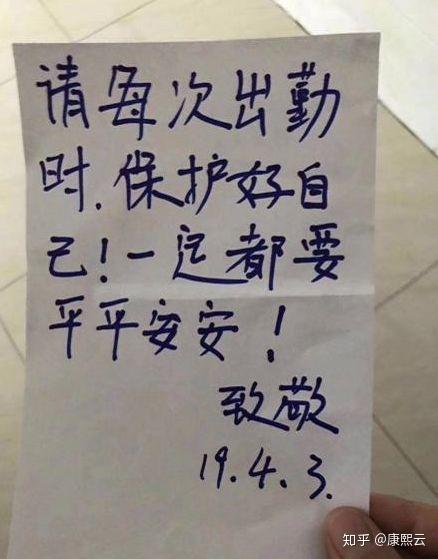 请每次出勤
时.保护好自
己!一定都要
平平安安!
致敬
19.4.3.
知乎 @康熙云